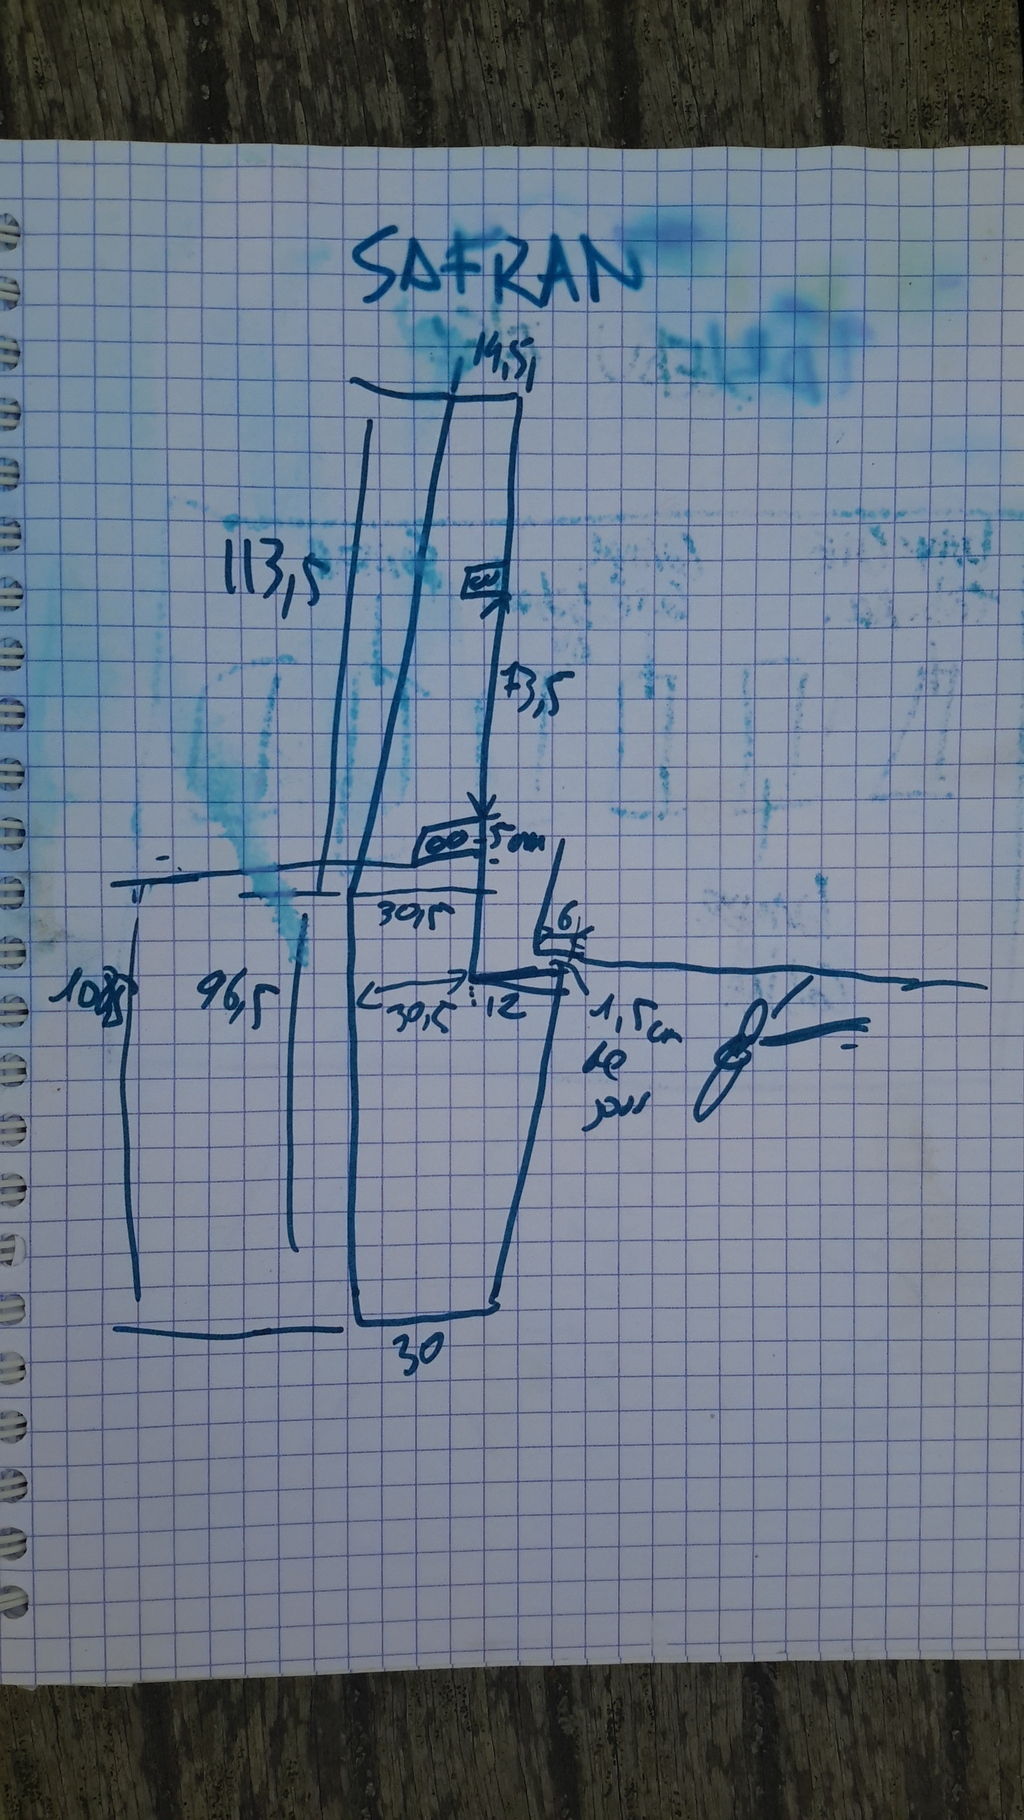 SAFRAN
14,5
113,5
73,5
5cm
30,5
6
96,5
30,5
12
1,5cm
de
jour
30